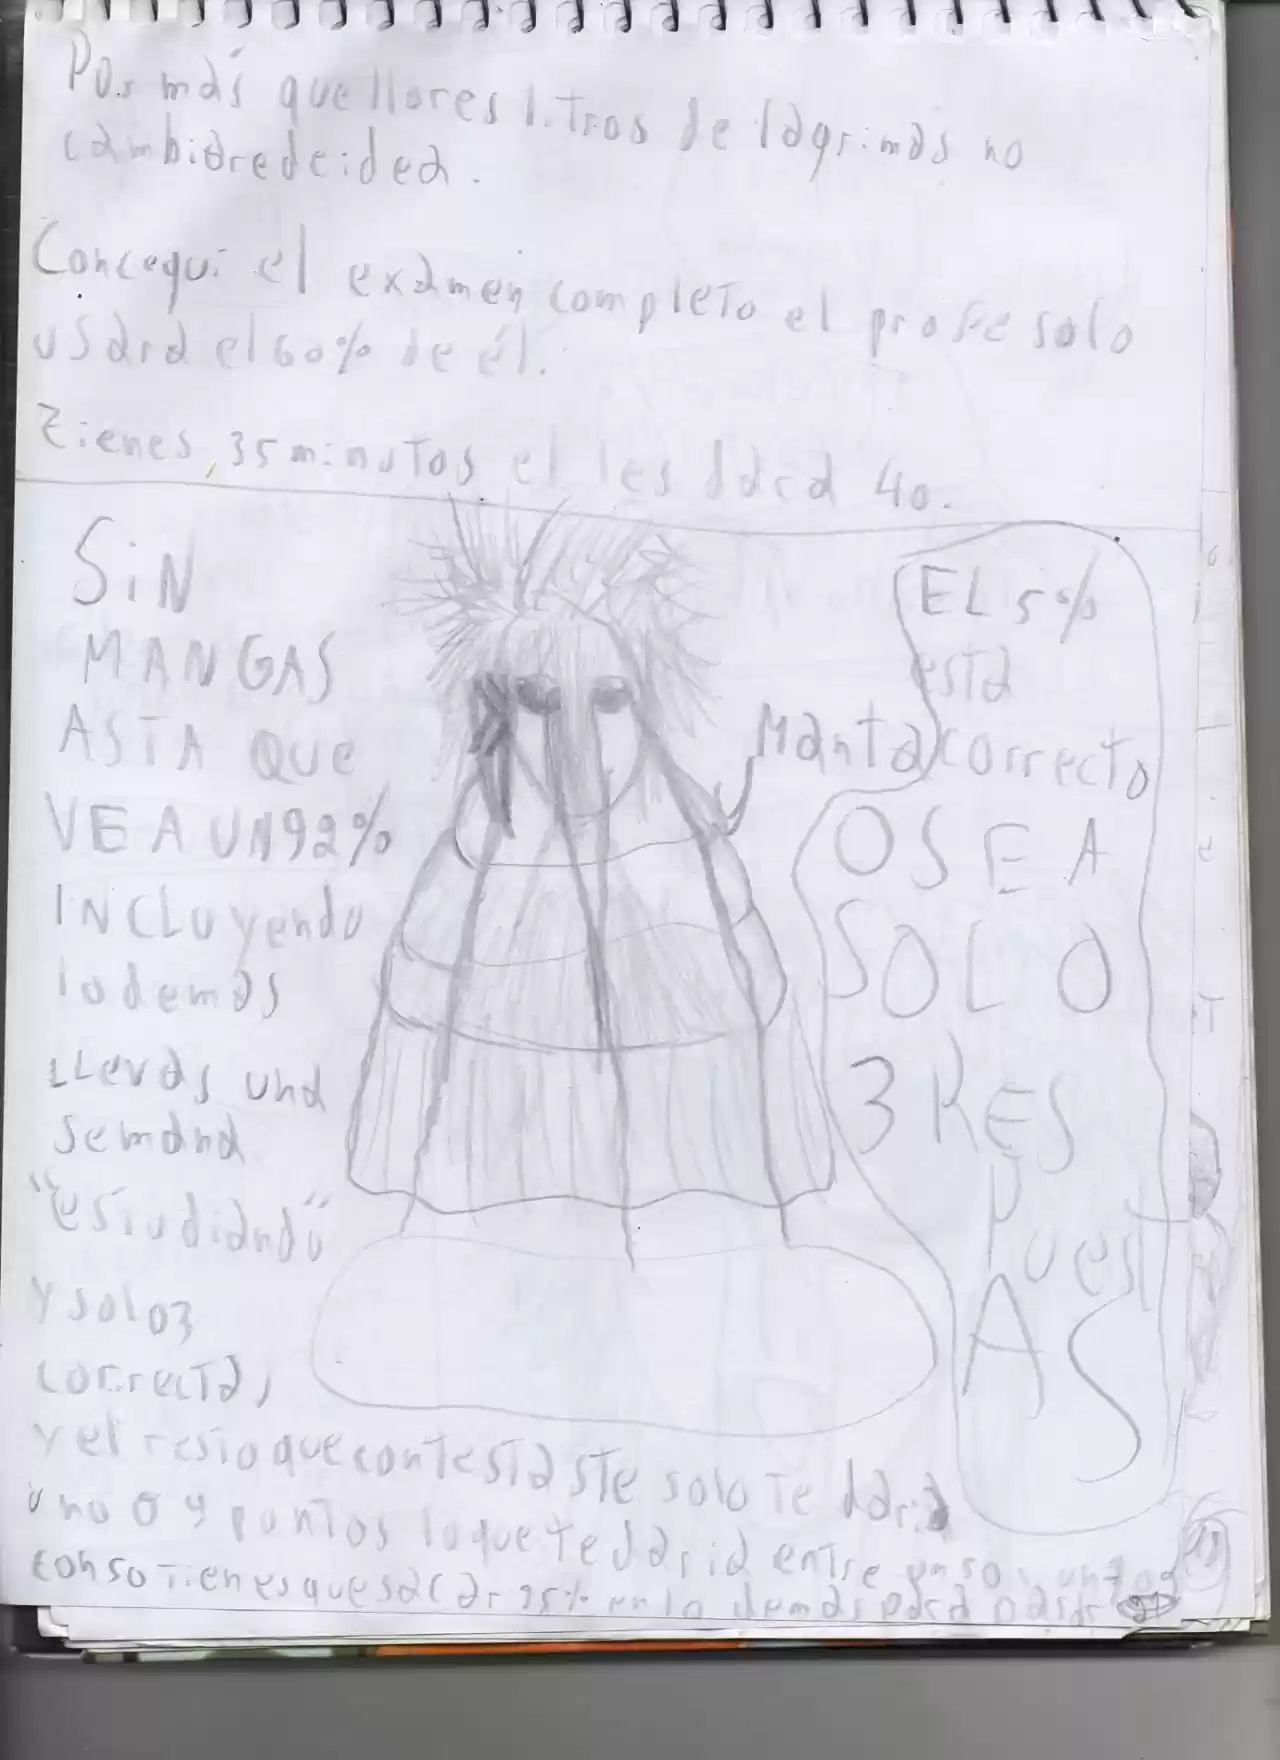 Por más que llores litros de lagrimas no
cambiare de idea.
Concequi el examen completo el profe solo
usara el 60% de él.
Tienes, 35 minutos el les dara 40.
SiN
MANGAS
ASTA QUE
VEA UN 92%
INCLUyendo
lo demas
LLevas una
semana
"estudiando"
y solo 3
correctas
y el resto que contestaste solo te daria
uno o 4 puntos lo que te daria entre un 50 y un
con 50 tienes que sacar 95% en lo demas para pasar
Manta
EL 5%
esta
correcto
OSEA
SOLO
3 RES
Puest
AS